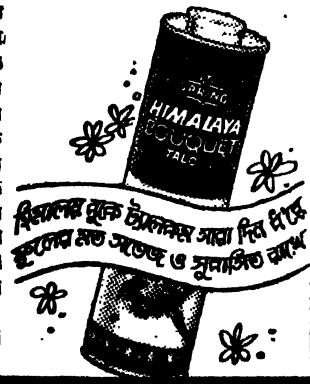 SPRING
HIMALAYA
BOUQUET
TALC
হিমালয় বুকে ট্যালকম সারা দিন ধ'রে
ফুলের মত সতেজ ও সুবাসিত রাখে